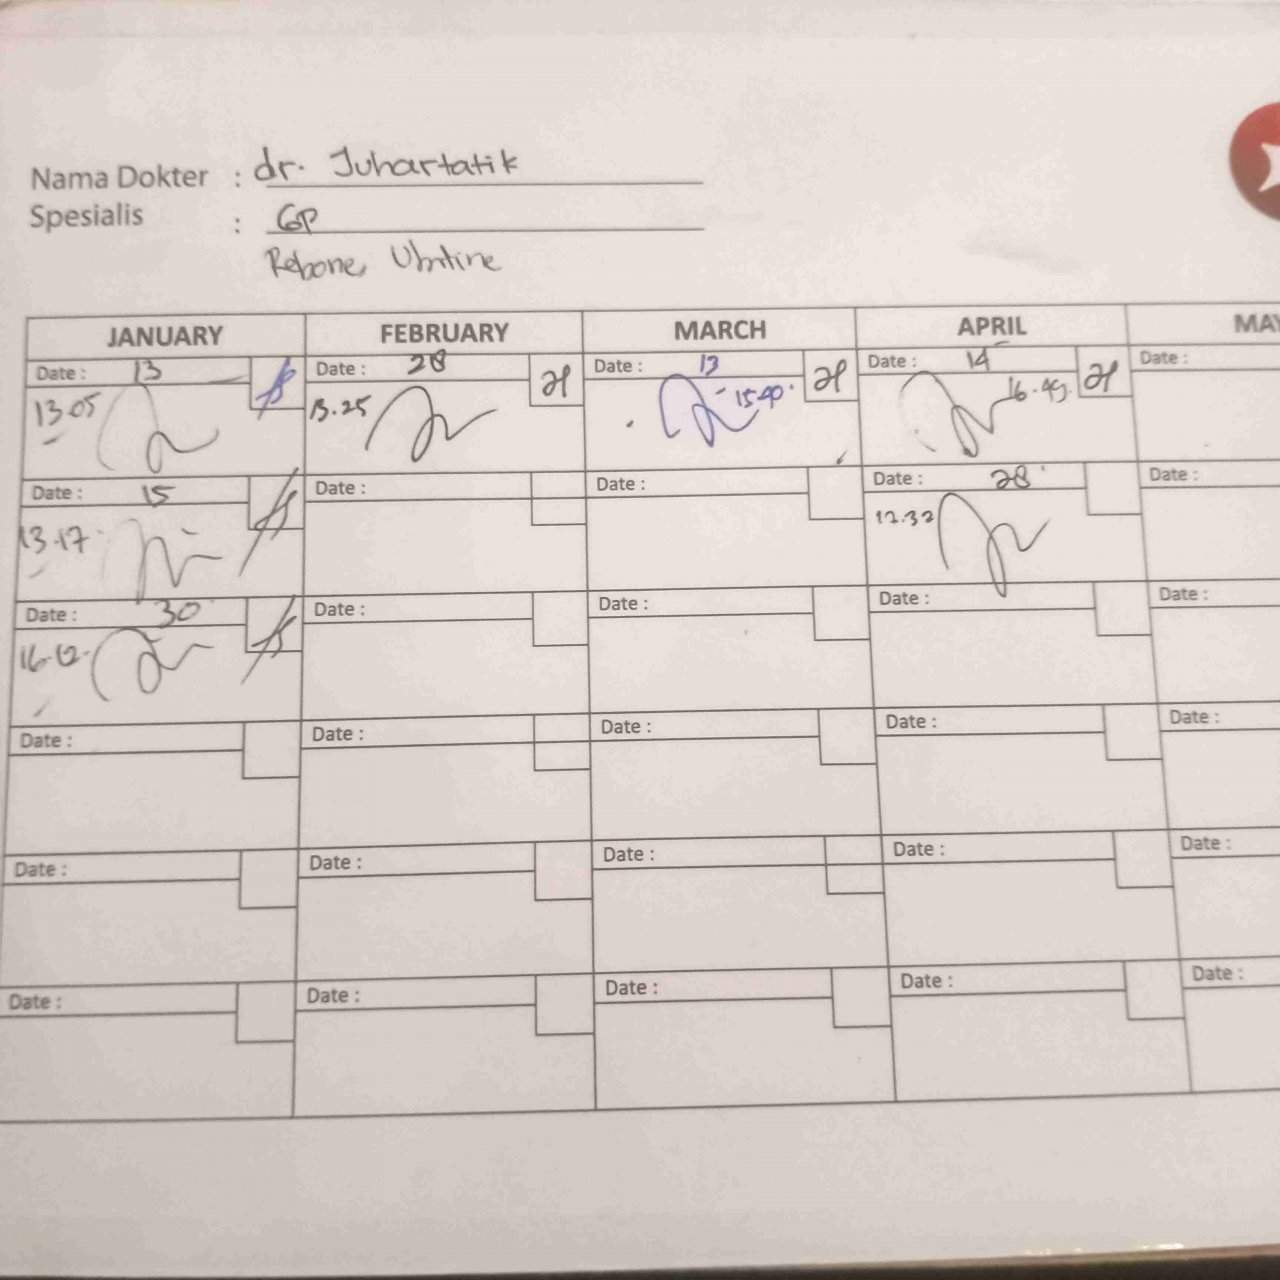 Nama Dokter : dr. Juhartatik
Spesialis : GP
Rebone,
JANUARY FEBRUARY MARCH APRIL MAY
Date : 13 Date : 28 Date : 13 Date : 14 Date :
13.05 13.25 15.40 16.49
Date : 15 Date : Date : Date : 28 Date :
13.17 12.32
Date : 30 Date : Date : Date : Date :
16.12
Date : Date : Date : Date : Date :
Date : Date : Date : Date : Date :
Date : Date : Date : Date : Date :